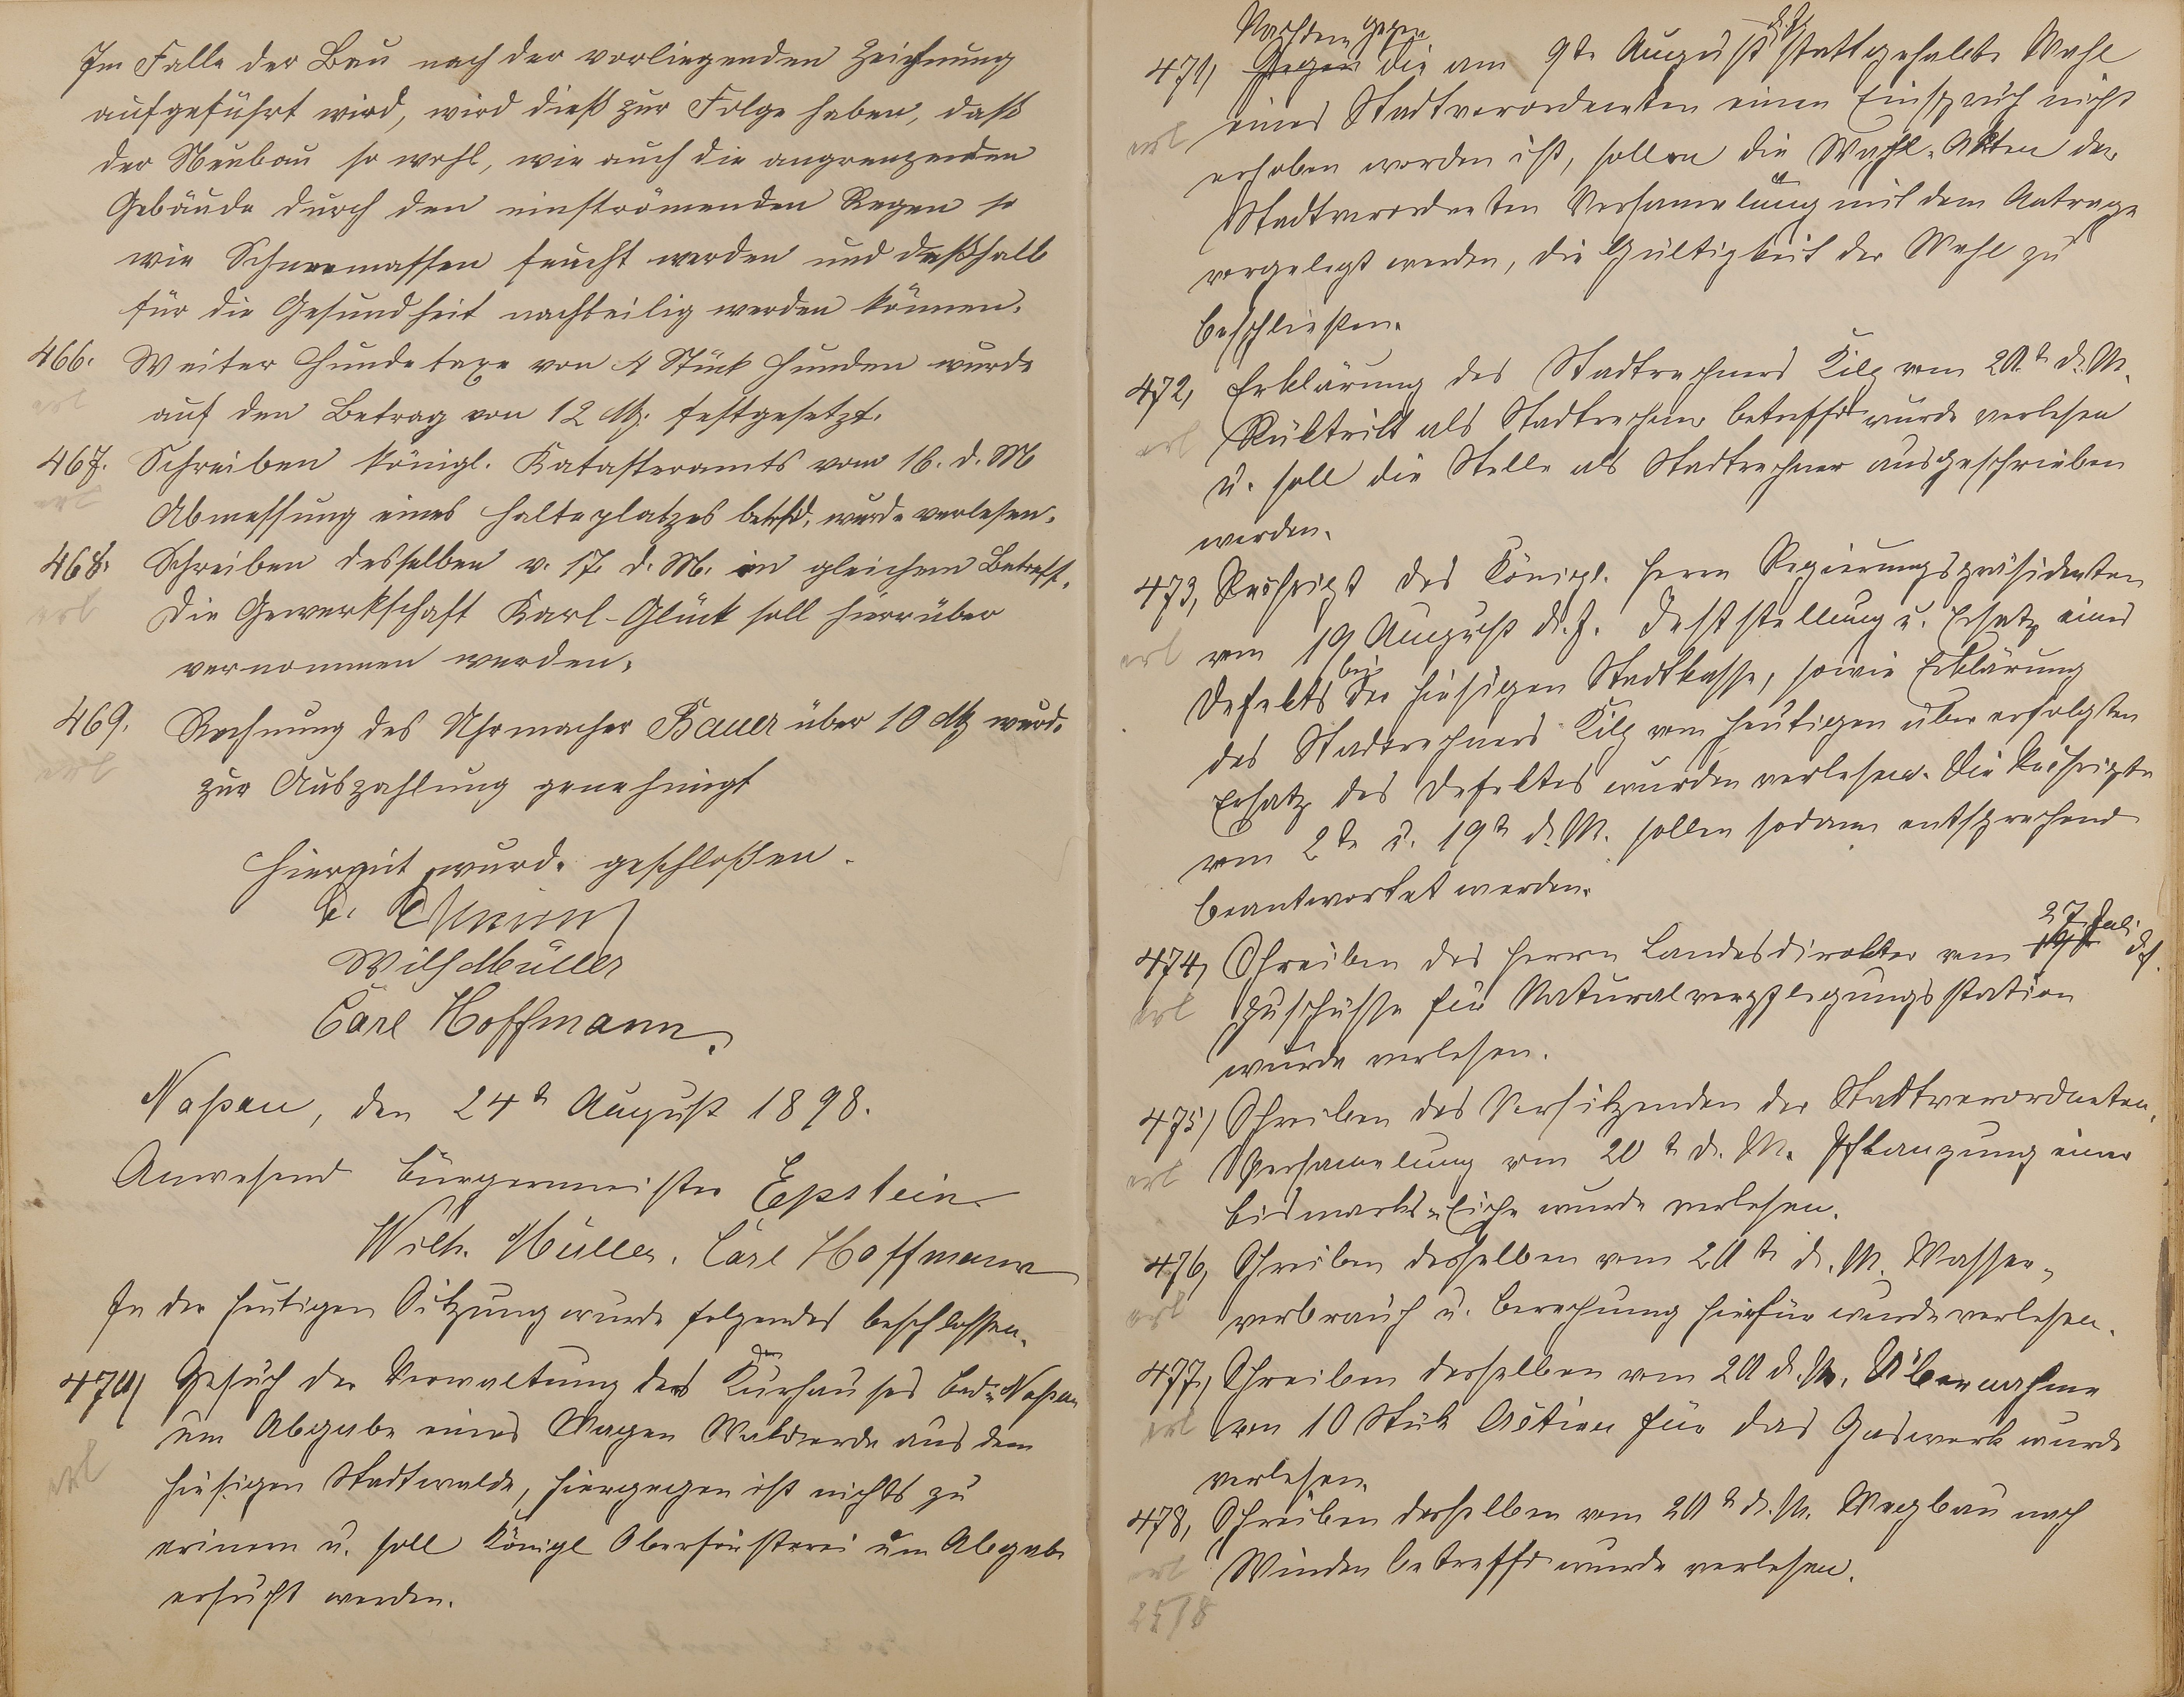 Im Falle der Bau nach der vorliegenden Zeichnung
aufgeführt wird, wird dieß zur Folge haben, daß
der Neubau so wohl, wie auch die angrenzenden
Gebäude durch den einströmenden Regen so
wie Schneemassen feucht werden und deßhalb
für die Gesundheit nachteilig werden können.
466. Weiter Hundetaxe von 4 Stück Hunden wurde
erl
auf den Betrag von 12 M. festgesetzt.
467. Schreiben königl. Katasteramts vom 16. d. M
erl
Abmessung eines Halteplatzes betrfd. wurde verlesen.
468. Schreiben desselben v. 17. d. M. in gleichem Betreff.
erl
Die Gewerkschaft Karl-Glück soll hierrüber
vernommen werden.
469. Rechnung des Uhrmacher Bauer über 10 M wurde
erl
zur Auszahlung genehmigt
Hiermit wurde geschloßen.
Wilh Müller
Carl Hoffmann.
Naßau, den 24t August 1898.
Anwesend Bürgermeister Epstein
Wilh. Müller, Carl Hoffmann
In der heutigen Sitzung wurde folgendes beschlossen.
470) Gesuch der Verwaltung des Kurhauses Bad-Naßau
um Abgabe eines Wagen Walderde aus dem
erl
hiesigen Stadtwalde, hiergegen ist nichts zu
erinern u. soll Königl Oberförsterei um Abgabe
ersucht werden.
Nachdem gegen
471, Gegen die am 9te August d. J. stattgehabte Wahl
eines Stadtverordneten einen Einspruch nicht
erl
erhoben worden ist, sollen die Wahl-Akten der
Stadtverordneten Versamelung mit dem Antrage
vorgelegt werden, die Gültigkeit der Wahl zu
beschließen.
472, Erklärung des Stadtrechners Kilz vom 20t d. M.
erl
Rüktritt als Stadtrechner betreffd wurde verlesen
u. soll die Stelle als Stadtrechner ausgeschrieben
werden.
473, Reskript des Königl. Herrn Regierungspräsidenten
erl
vom 19 August d. J. Feststellung u. Ersatz eines
Defekts bei der hiesigen Stadtkasse, sowie Erklärung
des Stadtrechners Kilz vom heutigen über erfolgten
Ersatz des Defektes wurden verlesen. Die Reskripte
vom 2te u. 19t d. M. sollen sodann entsprechend
beantwortet werden.
27. Juli
474, Schreiben des Herrn Landesdirektor vom 19te d. J.
erl
Zuschüsse für Naturalverpflegungsstation
wurde verlesen.
475) Schreiben des Vorsitzenden der Stadtverordneten-
erl
Versamelung vom 20t d. M. Pflanzung einer
Bismarks-Eiche wurde verlesen.
476, Schreiben desselben vom 20t d. M. Wasser-
erl
verbrauch u. Berechnung hierfür wurde verlesen.
477, Schreiben desselben vom 20 d. M. Übernahme
erl
von 10 Stük Actien für das Gaswerk wurde
verlesen.
478, Schreiben desselben vom 20t d. M. Wegbau nach
erl
Winden betreffd wurde verlesen.